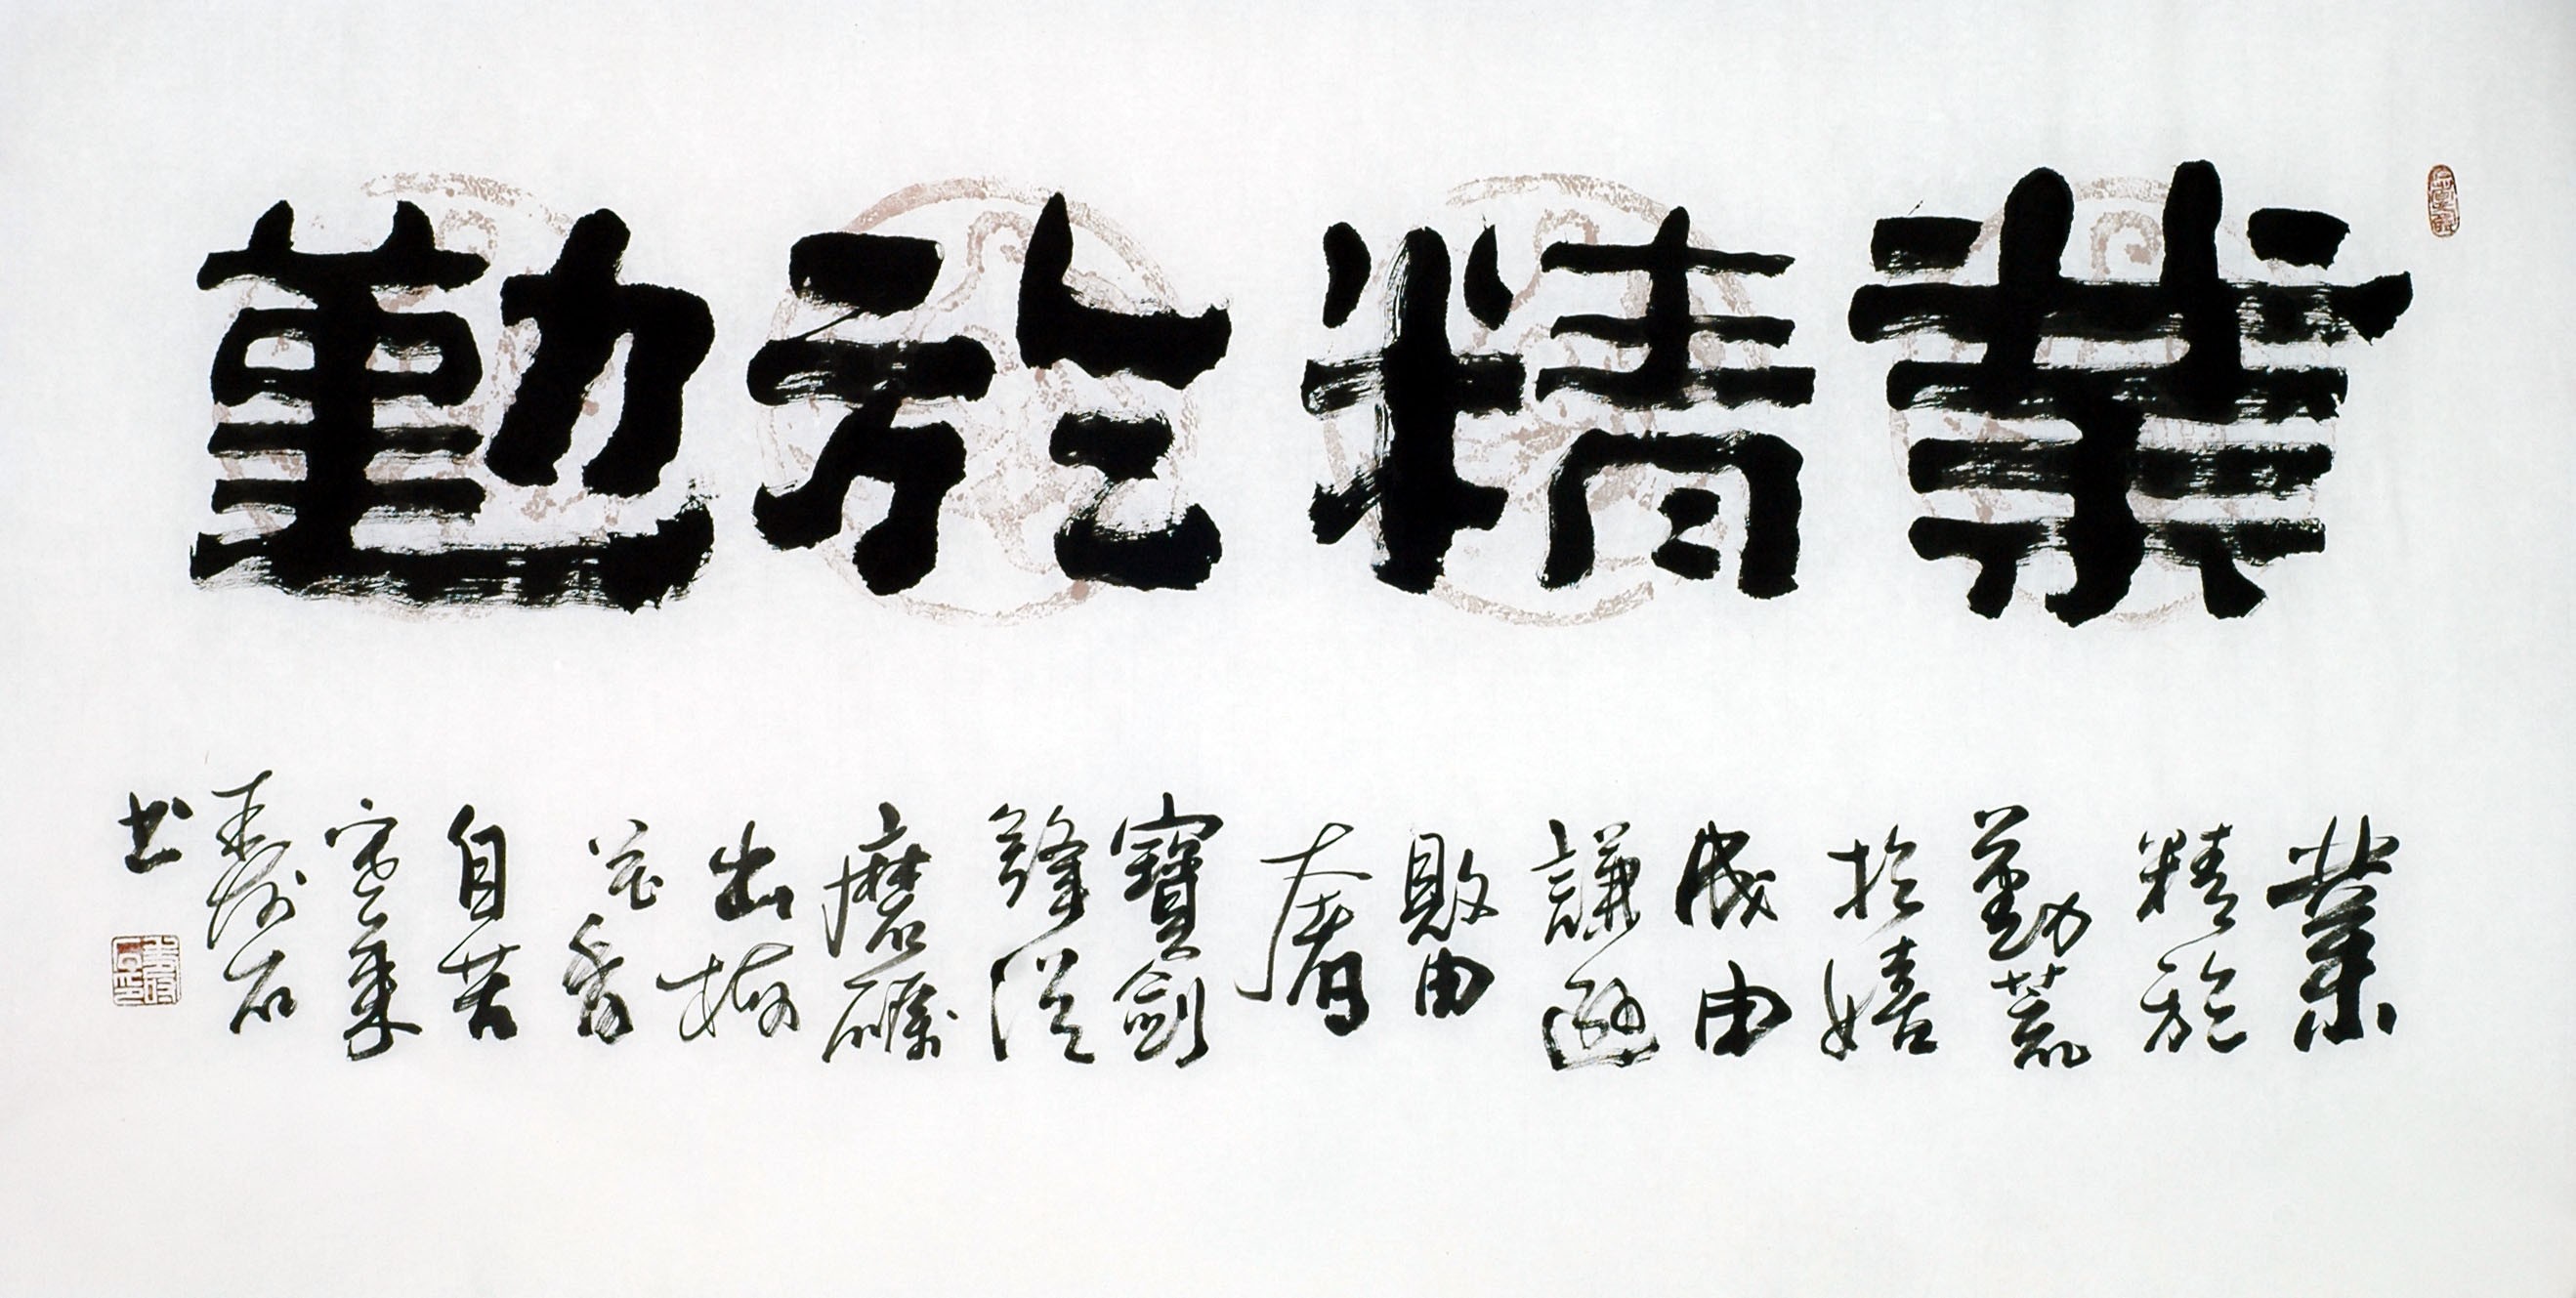 業精於勤
業
精於
勤荒
於嬉
成由
謙遜
敗由
奢
寶劍
鋒從
磨礪
出梅
花香
自苦
寒來
石
書